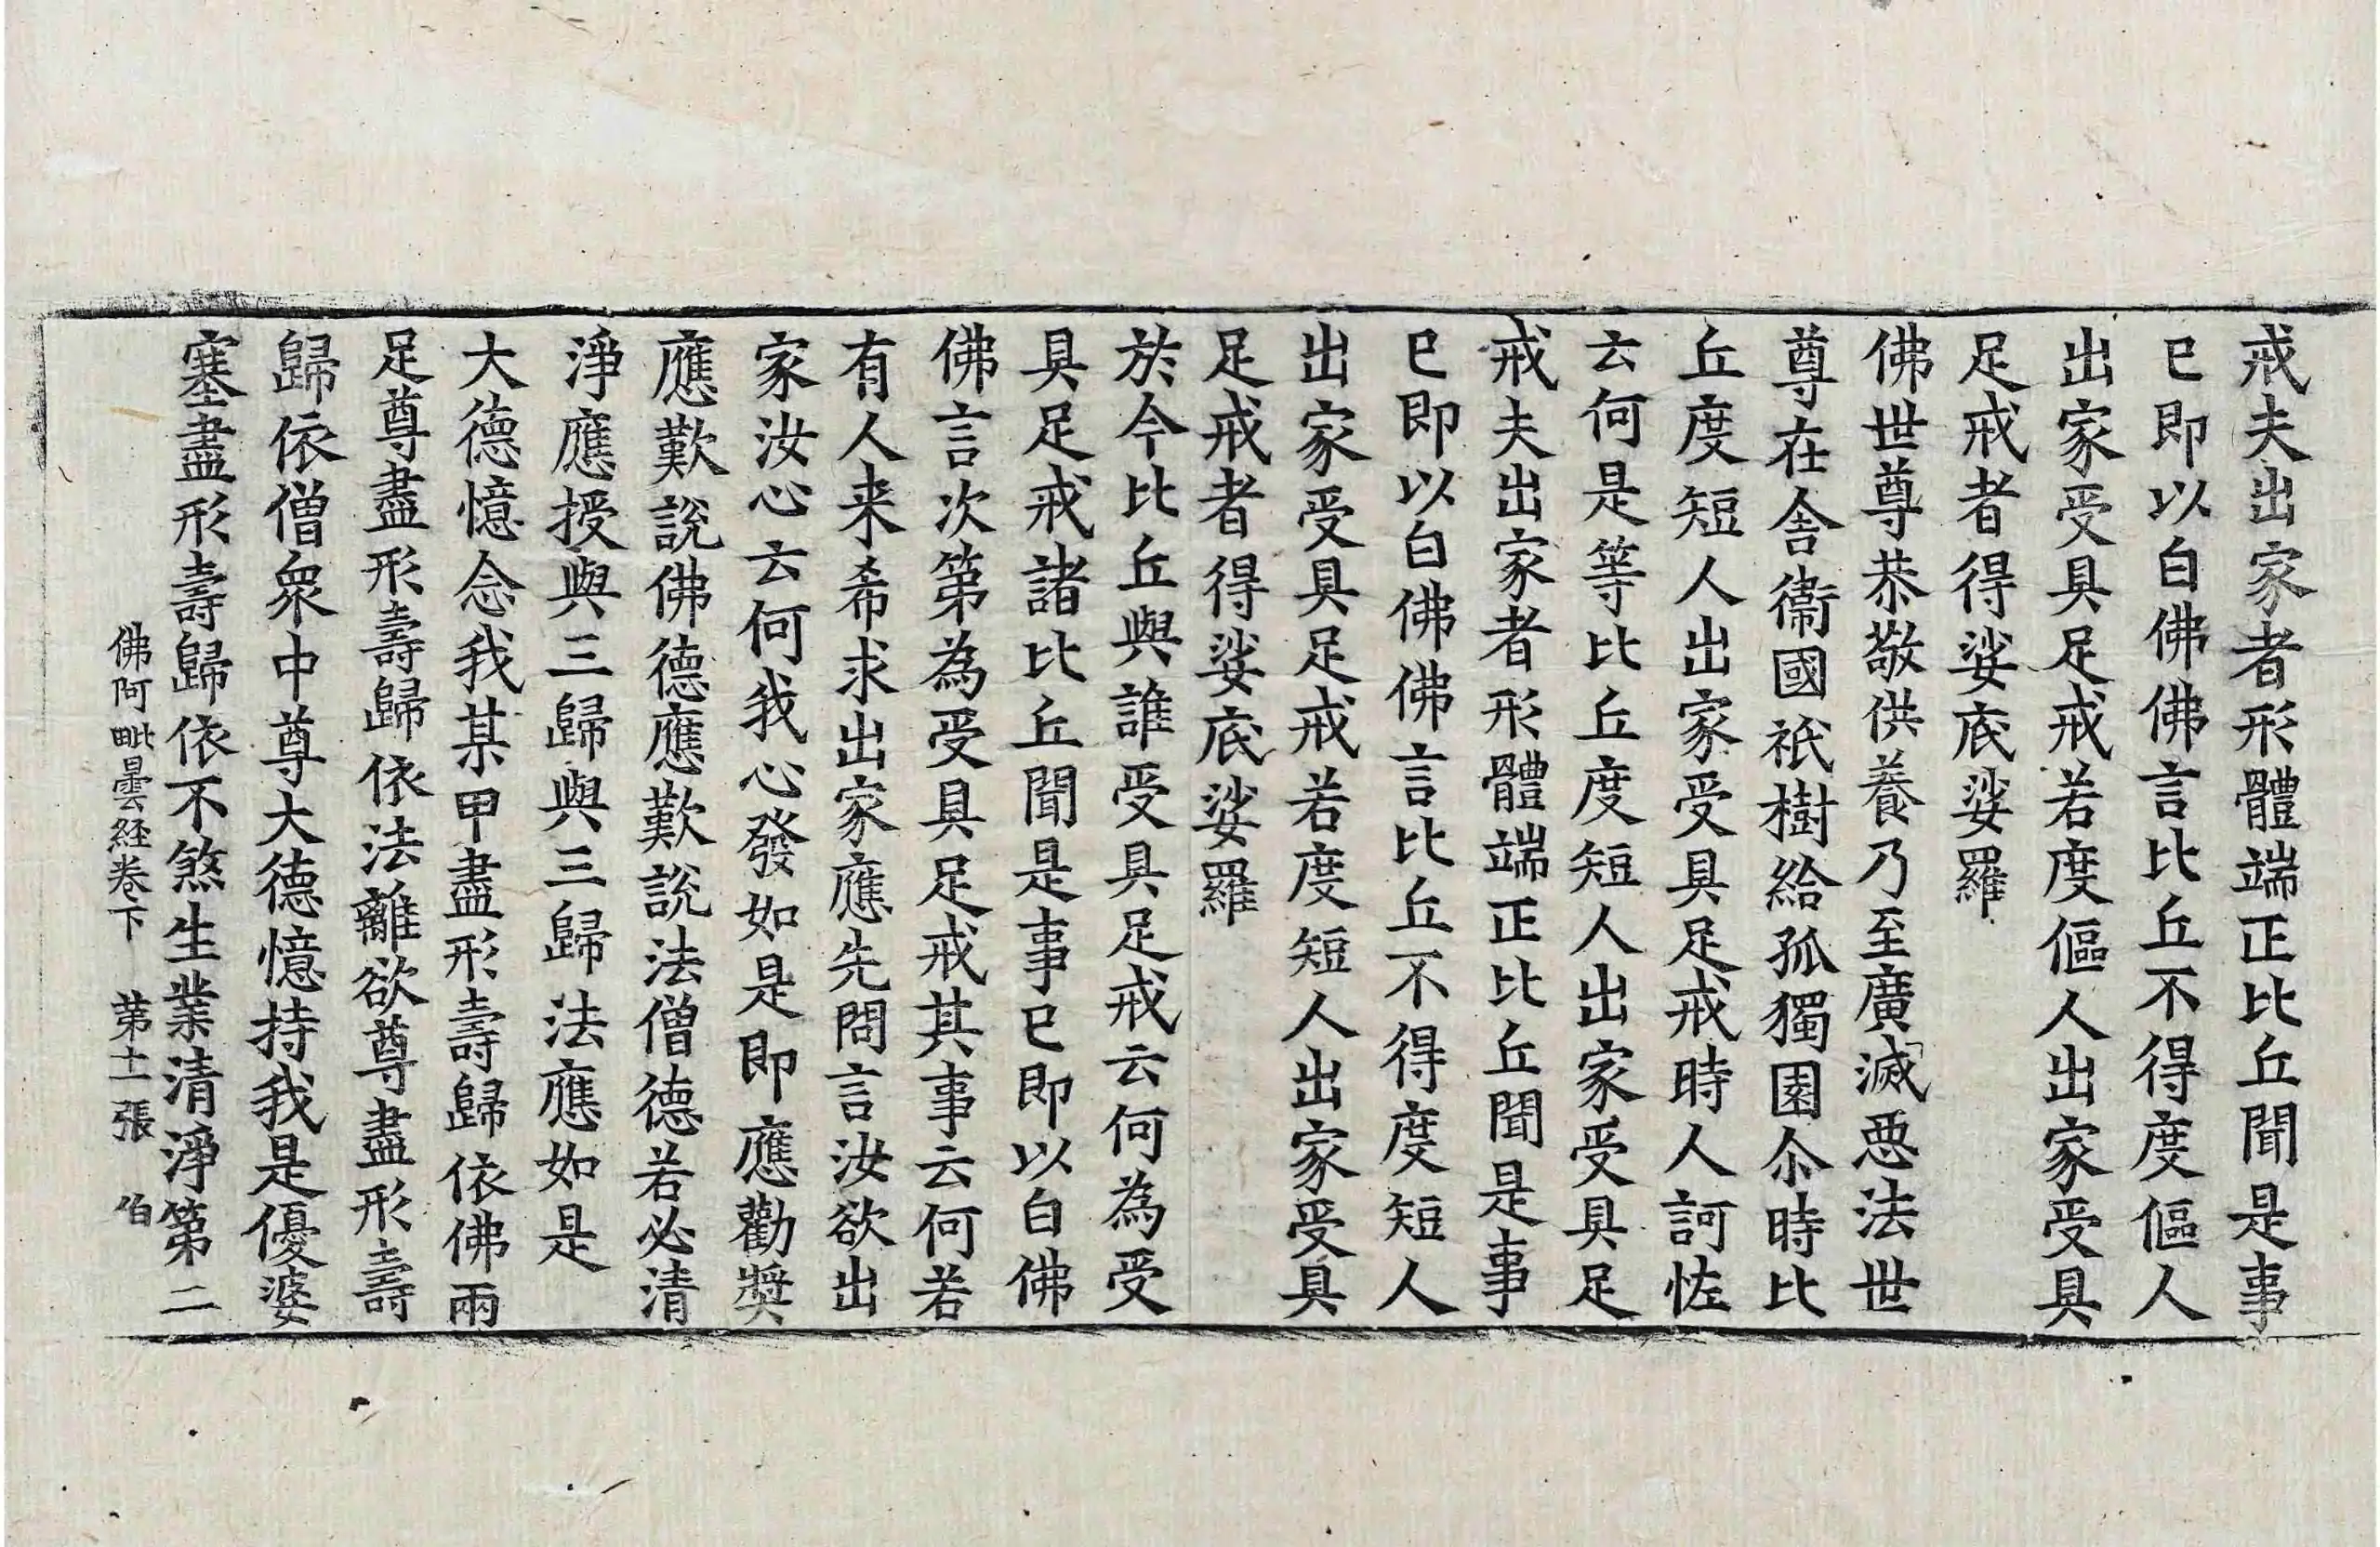 戒夫出家者形體端正比丘聞是事
已即以白佛佛言比丘不得度傴人
出家受具足戒若度傴人出家受具
足戒者得娑底娑羅
佛世尊恭敬供養乃至廣滅惡法世
尊在舍衞國祇樹給孤獨園尒時比
丘度短人出家受具足戒時人訶恠
云何是等比丘度短人出家受具足
戒夫出家者形體端正比丘聞是事
已即以白佛佛言比丘不得度短人
出家受具足戒若度短人出家受具
足戒者得娑底娑羅
於今比丘與誰受具足戒云何為受
具足戒諸比丘聞是事已即以白佛
佛言次第為受具足戒其事云何若
有人来希求出家應先問言汝欲出
家汝心云何我心發如是即應勸奬
應歎說佛德應歎說法僧德若必清
淨應授與三歸與三歸法應如是
大德憶念我某甲盡形壽歸依佛兩
足尊盡形壽歸依法離欲尊盡形壽
歸依僧衆中尊大德憶持我是優婆
塞盡形壽歸依不煞生業清淨第二
佛阿毗曇経卷下 第十一張 伯